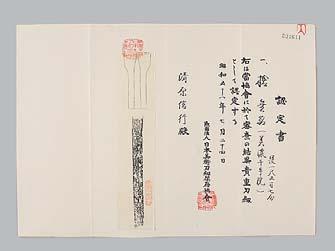 認定書
一、槍 無銘(美濃千手院)
長一尺五寸七分
右は當協會に於て審査の結果貴重刀剣
として認定する
昭和五十一年七月二十四日
財團法人日本美術刀剣保存協會
清原信行殿